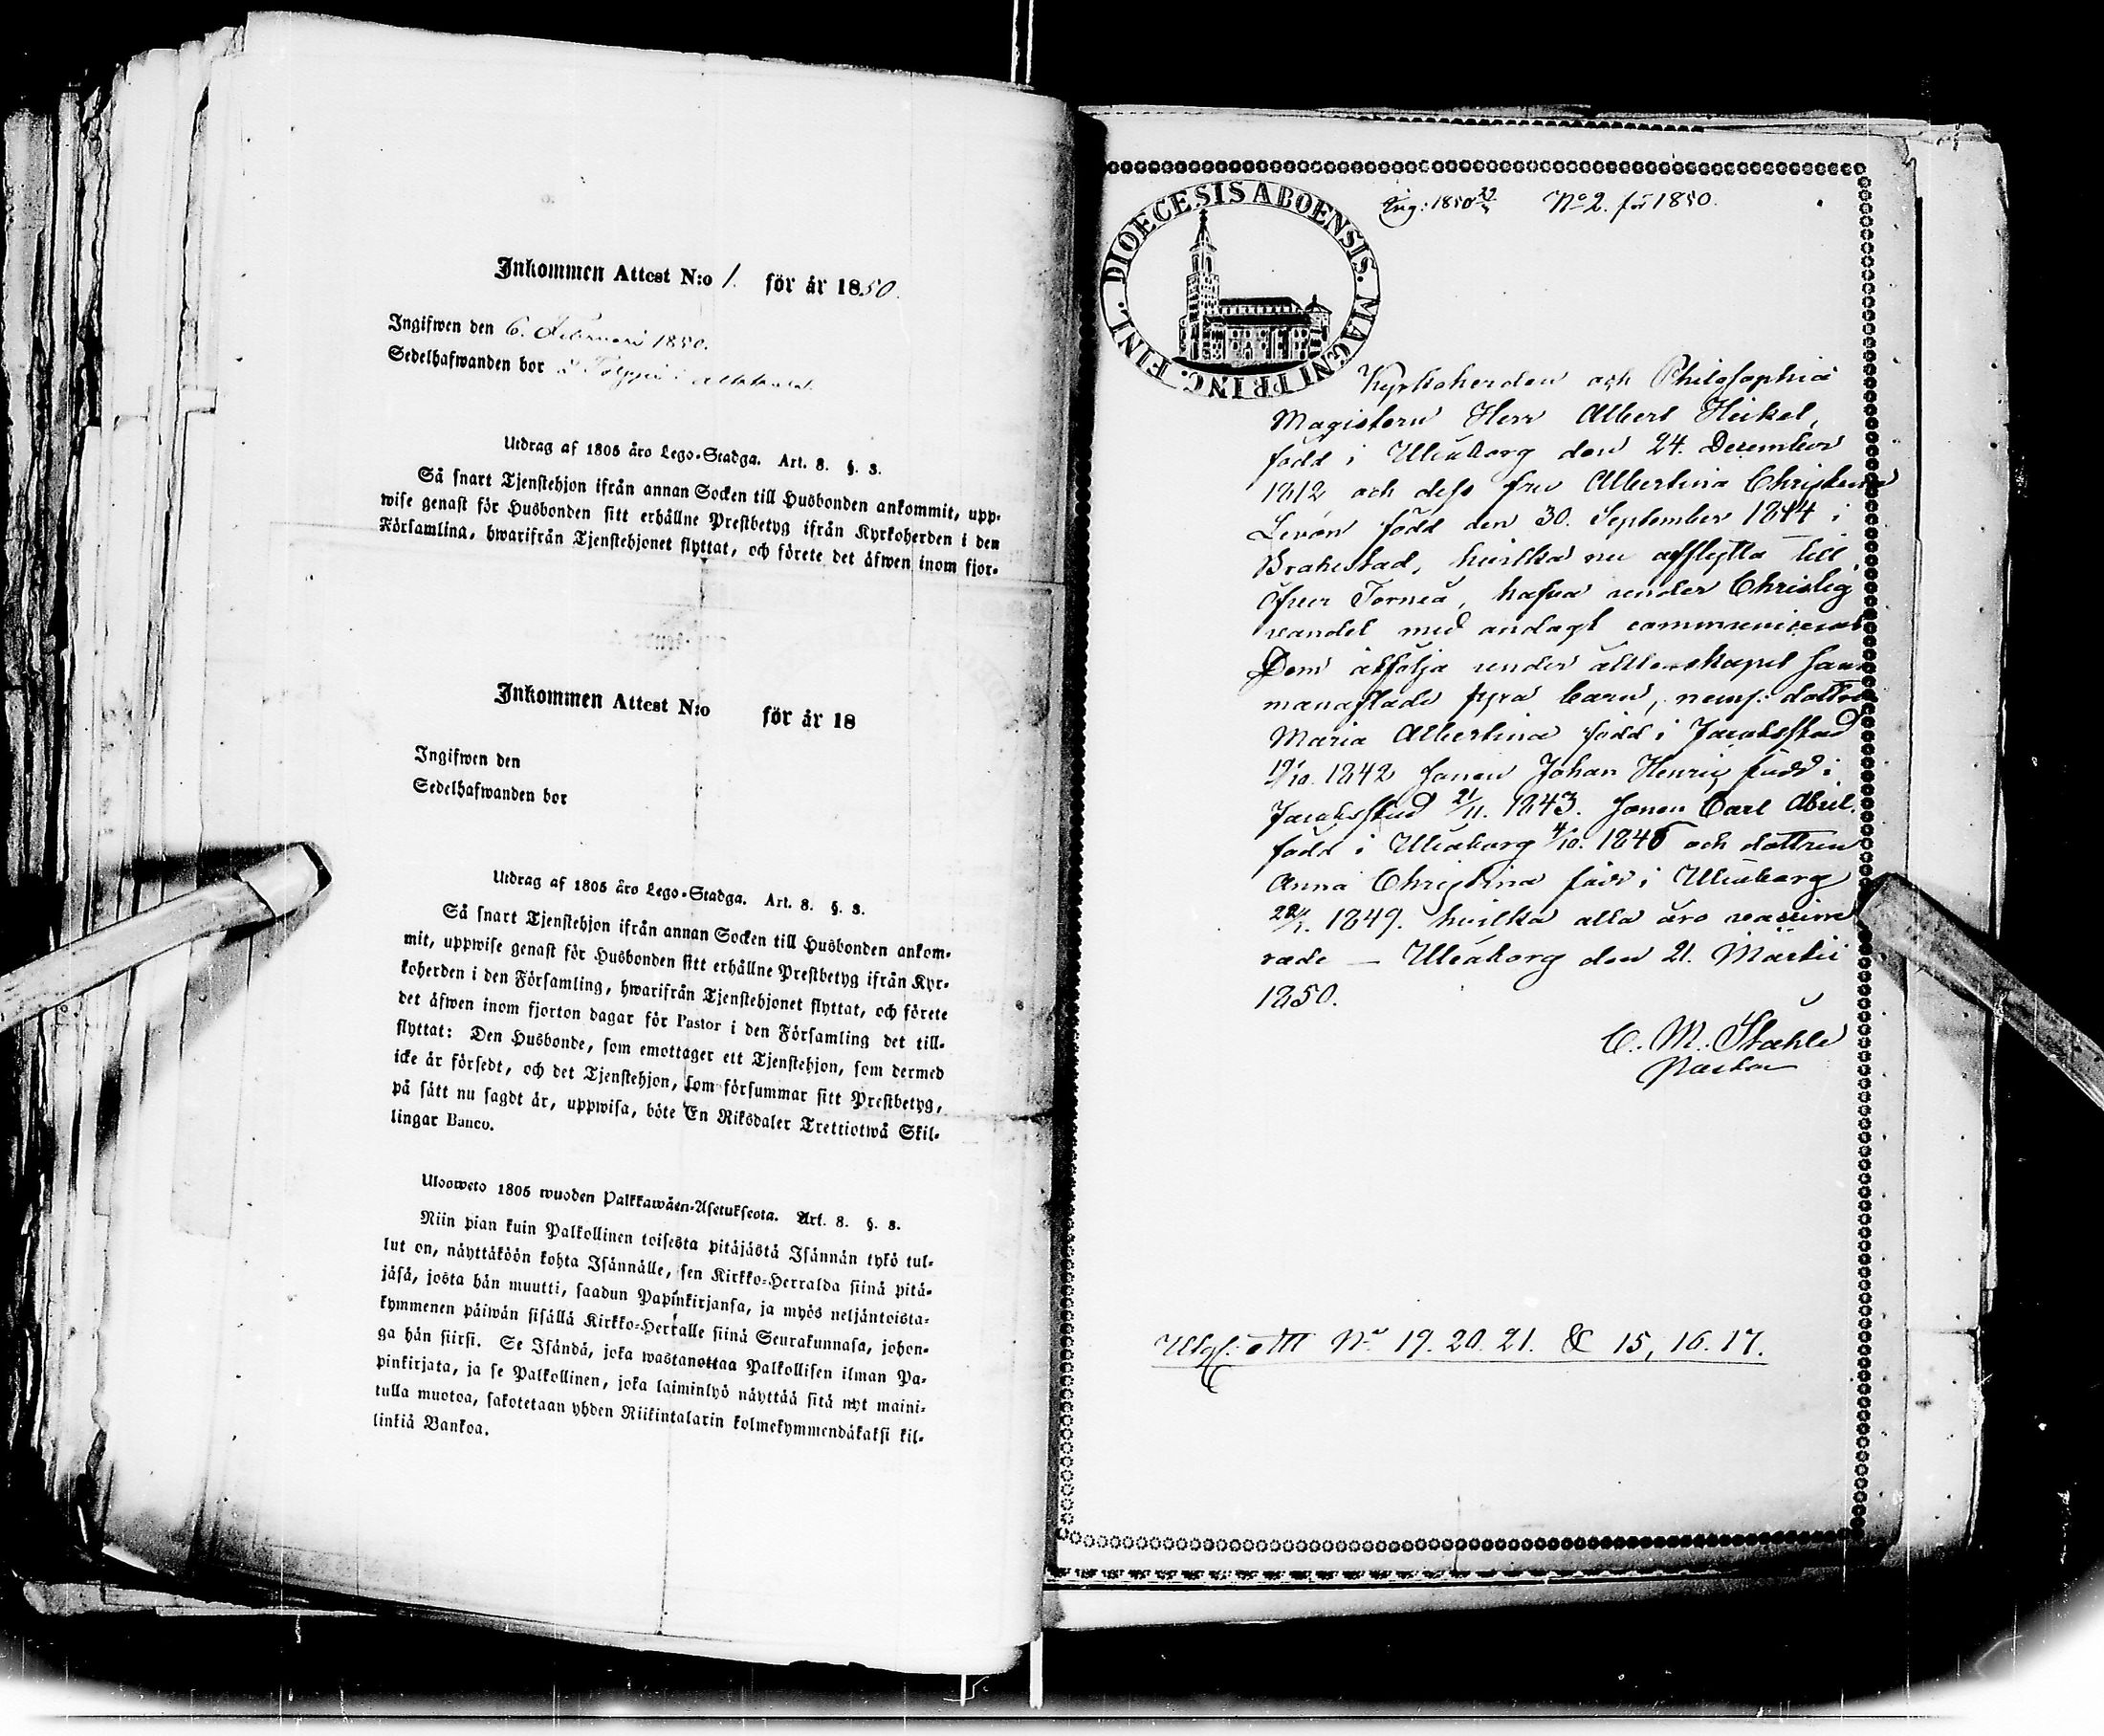 Inkommen Attest N:o 1. för år 1850.
Ingifwen den 6. Februari 1850.
Sedelhafwanden bor
Utdrag af 1805 års Lego-Stadga. Art. 8. §. 3.
Så snart Tjenstehjon ifrån annan Socken till Husbonden ankommit, upp-
wise genast för Husbonden sitt erhållne Prestbetyg ifrån Kyrkoherden i den
Församling, hwarifrån Tjenstehjonet flyttat, och förete det äfwen inom fjor-
Inkommen Attest N:o för år 18
Ingifwen den
Sedelhafwanden bor
Utdrag af 1805 års Lego-Stadga. Art. 8. §. 3.
Så snart Tjenstehjon ifrån annan Socken till Husbonden ankom-
mit, uppwise genast för Husbonden sitt erhållne Prestbetyg ifrån Kyr-
koherden i den Församling, hwarifrån Tjenstehjonet flyttat, och förete
det äfwen inom fjorton dagar för Pastor i den Församling det till-
flyttat: Den Husbonde, som emottager ett Tjenstehjon, som dermed
icke är försedt, och det Tjenstehjon, som försummar sitt Prestbetyg,
på sätt nu sagdt är, uppwisa, böte En Riksdaler Trettiotwå Skil-
lingar Banco.
Ulosweto 1805 wuoden Palkkawäen-Asetuksesta. Art. 8. §. 3.
Niin pian kuin Palkollinen toisesta pitäjästä Isännän tykö tul-
lut on, näyttäköön kohta Isännälle, sen Kirkko-Herralda siinä pitä-
jäsä, josta hän muutti, saadun Papinkirjansa, ja myös neljäntoista-
kymmenen päiwän sisällä Kirkko-Herralle siinä Seurakunnasa, johon-
ga hän siirsi. Se Isändä, joka wastanottaa Palkollisen ilman Pa-
pinkirjata, ja se Palkollinen, joka laiminlyö näyttää sitä nyt maini-
tulla muotoa, sakotetaan yhden Riikintalarin kolmekymmendäkaksi kil-
linkiä Bankoa.
DIOECESIS ABOENSIS. MAGNI PRINC. FINL.
Ing: 1850 No 2. för 1850.
Kyrkoherden och Philosophiæ
Magistern Herr Albert Heikel,
född i Uleåborg den 24. December
1812 och dess fru Albertina Christina
Levon född den 30. September 1814 i
Brahestad, hvilka nu afflytta till
Öfver Torneå, hafva under Christlig
vandel med andagt communicerat
Dem åtfölja under äktenskapet sam-
manaflade fyra barn, neml: dottren
Maria Albertina född i Jacobsstad
1842 sonen Johan Henric född i
Jacobsstad 21/11. 1843. sonen Carl Abiel.
född i Uleåborg 4/10. 1846 och dottren
Anna Christina född i Uleåborg
1849. hvilka alla äro vaccine
rade — Uleåborg den 21. Martii
1850.
C. M. Ståhle
Pastor
Utgf. Att No 19. 20. 21. & 15, 16. 17.